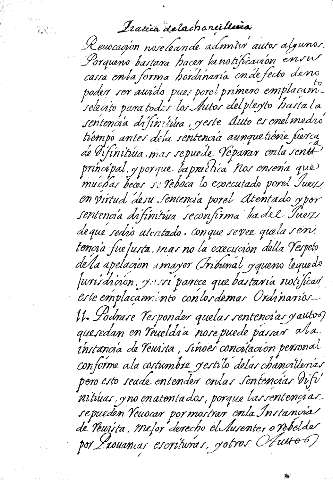 Pratica de la chancilleria
Revocacion no se han de admitir autos algunos.
Porque no bastara hacer la notificacion en sus
cassa en la forma hordinaria en defecto de no
poder ser avido pues por el primero emplacam.to
se le cito para todos los Autos del pleyto hasta la
sentencia difinitiva, y este Auto es en el medio
tiempo antes de la sentencia aunque tiene fuerça
de difinitiva, mas se puede Reparar en la sent.a
principal, y porque la practica nos enseña que
muchas veces se Reboca lo executado por el Juez
en virtud de su sentencia por el Atentado y por
sentencia difinitiva se confirma la del Juez
de que se dio atentado. con que se ve que la sen-
tencia fue justa, mas no la execucion della Respeto
de la apelacion a mayor Tribunal y que no le quedo
jurisdicion, y assi parece que bastaria notificar
este emplaçamiento con los demas Ordinarios.
11. Podrase Responder que las sentencias y autos
que se dan en Reveldia no se puede passar a la
instancia de Revista, sino es con citacion personal
conforme a la costumbre y estilo de las chancillerias
pero esto se ude entender en las sentencias difi
nitivas, y no en atentados, porque las sentencias
se pueden Revocar por mostrar en la Instancia
de Revista, mejor derecho el Ausente, o Rebelde
por Provanças escrituras, y otros (Autto 6)